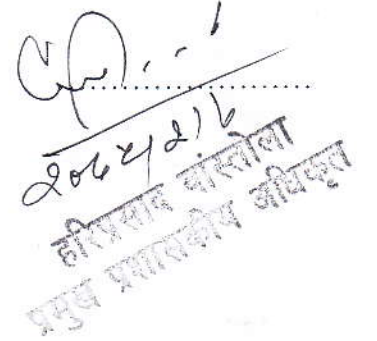 २०७५/२/६
हरिप्रसाद बास्तोला
प्रमुख प्रशासकीय अधिकृत